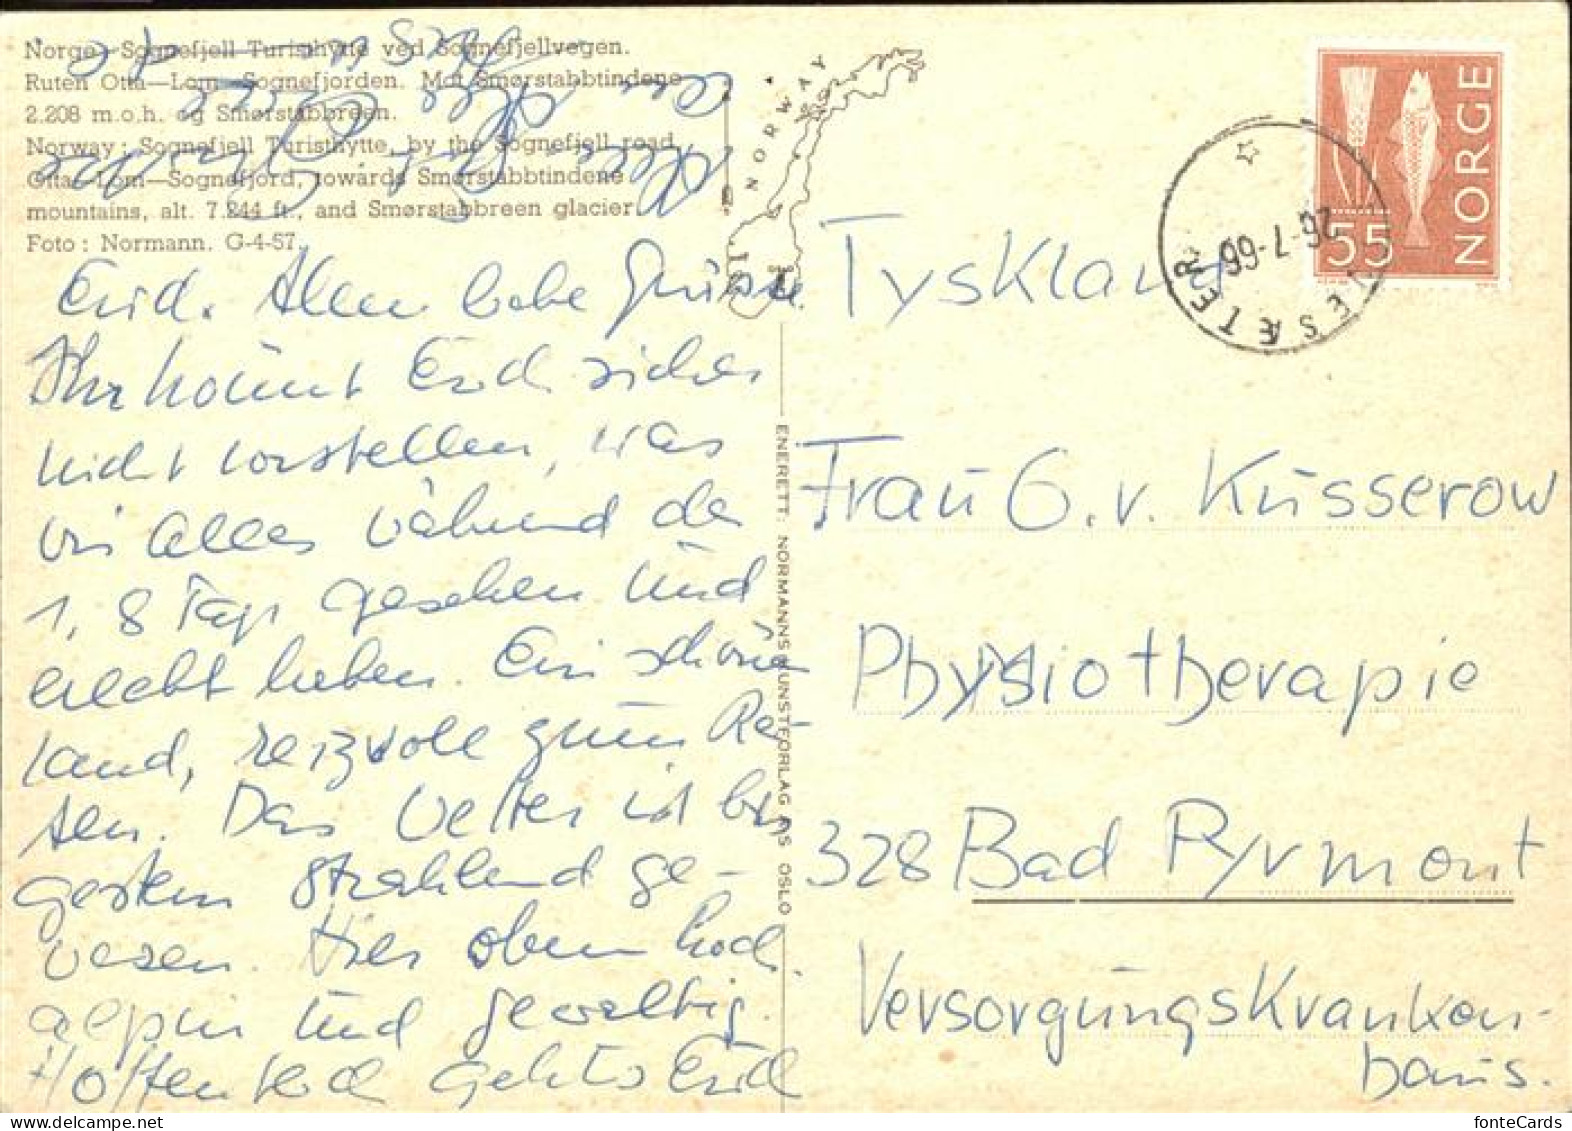 Norge: Sognefjell Turisthytte ved Sognefjellvegen.
Ruten Otta—Lom—Sognefjorden. Mot Smørstabbtindene
2.208 m.o.h. og Smørstabbreen.
Norway: Sognefjell Turisthytte, by the Sognefjell road,
Otta—Lom—Sognefjord, towards Smørstabbtindene
mountains, alt. 7.244 ft., and Smørstabbreen glacier.
Foto: Normann. G-4-57.
Euch. Allen liebe Grüsse
Ihr könnt Euch sicher
nicht vorstellen, was
wir alles während der
1, 8 Tage gesehen und
erlebt haben. Ein schönes
Land, reizvoll zum Rei-
sen. Das Wetter ist bis
gestern strahlend ge-
wesen. Hier oben hoch
alpin und gewaltig.
Hoffentlich geht's Euch
NORWAY
ENERETT: NORMANNS KUNSTFORLAG A/S OSLO
NORGE
55
26-7-66
Tyskland
Frau G. v. Küsserow
Physiotherapie
328 Bad Pyrmont
Versorgungskranken-
haus.
fonteCards